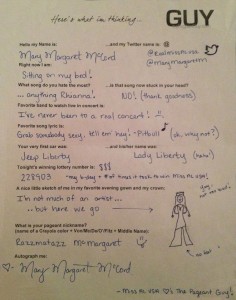 Here's what im thinking...
GUY
Hello my Name is:
...and my Twitter name is
Mary Margaret McCord
@realmissflusa
@marymargaretm1
Right now I am:
Sitting on my bed!
What song do you hate the most?
...is that song now stuck in your head?
... anything Rihanna!
NO! (thank goodness)
Favorite band to watch live in concert is:
I've never been to a real concert!
Favorite song lyric:
Grab somebody sexy, tell 'em hey! -Pitbull
(ok, why not?)
Your very first car was:
...and his/her name was:
Jeep Liberty
Lady Liberty (haha!)
Tonight's winning lottery number is:
$$$
228903
- my b-day + # of times it took to win Miss FL USA!
A nice little sketch of me in my favorite evening gown and my crown:
I'm not much of an artist...
but here we go
yes,
not the best!
What is your pageant nickname?
(name of a Crayola color + Von/Mc/De/O'/Fitz + Middle Name)
Razzmatazz McMargaret
Autograph me:
Mary Margaret McCord
- Miss FL USA ♡'s The Pageant Guy!